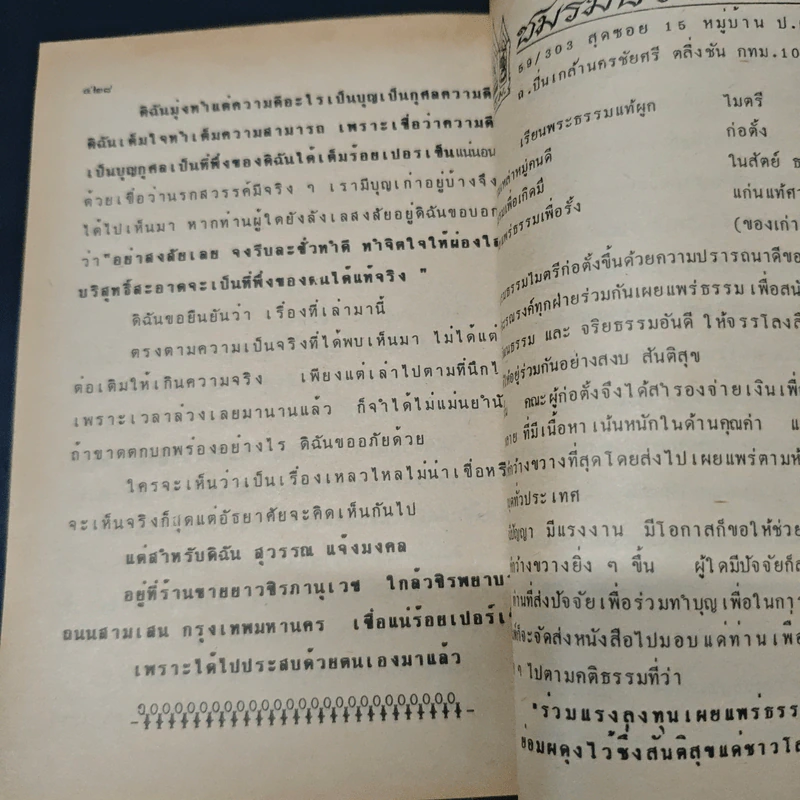 ๓๒๘
ดิฉันมุ่งทำแต่ความดีอะไรเป็นบุญเป็นกุศลความดี
ดิฉันเต็มใจทำเต็มความสามารถ เพราะเชื่อว่าความดี
เป็นบุญกุศลเป็นที่พึ่งของดิฉันได้เต็มร้อยเปอร์เซ็นแน่นอน
ด้วยเชื่อว่านรกสวรรค์มีจริง ๆ เรามีบุญเก่าอยู่บ้างจึง
ได้ไปเห็นมา หากท่านผู้ใดยังลังเลสงสัยอยู่ดิฉันขอบอก
ว่า"อย่าสงสัยเลย จงรีบละชั่วทำดี ทำจิตใจให้ผ่องใส
บริสุทธิ์สะอาดจะเป็นที่พึ่งของตนได้แท้จริง "
ดิฉันขอยืนยันว่า เรื่องที่เล่ามานี้
ตรงตามความเป็นจริงที่ได้พบเห็นมา ไม่ได้แต่
ต่อเติมให้เกินความจริง เพียงแต่เล่าไปตามที่นึกไ
เพราะเวลาล่วงเลยมานานแล้ว ก็จำได้ไม่แม่นยำนัก
ถ้าขาดตกบกพร่องอย่างไร ดิฉันขออภัยด้วย
ใครจะเห็นว่าเป็นเรื่องเหลวไหลไม่น่าเชื่อหรื
จะเห็นจริงก็สุดแต่อัธยาศัยจะคิดเห็นกันไป
แต่สำหรับดิฉัน สุวรรณ แจ้งมงคล
อยู่ที่ร้านขายยาวชิรภานุเวช ใกล้วชิรพยาบา
ถนนสามเสน กรุงเทพมหานคร เชื่อแน่ร้อยเปอร์เ
เพราะได้ไปประสบด้วยตนเองมาแล้ว
59/303 สุดซอย 15 หมู่บ้าน ป.
ถ.ปิ่นเกล้านครชัยศรี ตลิ่งชัน กทม.10
เรียนพระธรรมแท้ผูก ไมตรี
หมู่คนดี ก่อตั้ง
เพื่อเกิดมี ในสัตย์ ธ
ธรรมเพื่อรั้ง แก่นแท้ศา
(ของเก่า
ธรรมไมตรีก่อตั้งขึ้นด้วยความปรารถนาดีขอ
รณรงค์ทุกฝ่ายร่วมกันเผยแพร่ธรรม เพื่อสนั
ธรรม และ จริยธรรมอันดี ให้จรรโลงสั
อยู่ร่วมกันอย่างสงบ สันติสุข
คณะผู้ก่อตั้งจึงได้สำรองจ่ายเงินเพื่
ที่มีเนื้อหา เน้นหนักในด้านคุณค่า แ
กว้างขวางที่สุดโดยส่งไปเผยแพร่ตามห้
ทั่วประเทศ
ปัญญา มีแรงงาน มีโอกาสก็ขอให้ช่วย
กว้างขวางยิ่ง ๆ ขึ้น ผู้ใดมีปัจจัยก็ส
ท่านที่ส่งปัจจัยเพื่อร่วมทำบุญเพื่อในการ
ก็จะจัดส่งหนังสือไปมอบแด่ท่าน เพื่อ
ๆ ไปตามคติธรรมที่ว่า
"ร่วมแรงลงทุนเผยแพร่ธรร
ย่อมผดุงไว้ซึ่งสันติสุขแด่ชาวโล